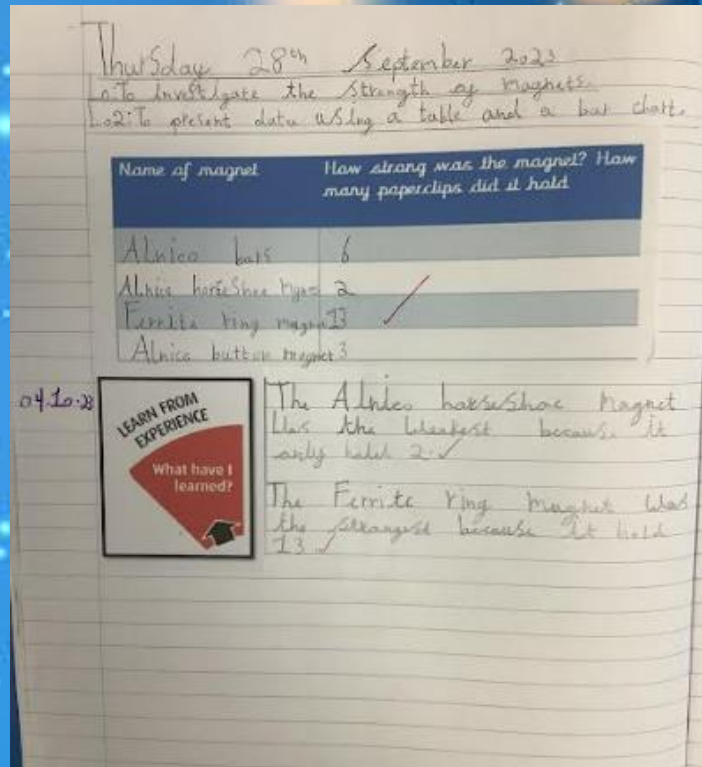 Thursday 28th September 2023
Lo: To investigate the strength of magnets.
Lo2: To present data using a table and a bar chart.
Name of magnet How strong was the magnet? How
many paperclips did it hold
Alnico bars 6
Alnico horseshoe 2
Ferrite ring magnet 13
Alnico button magnet 3
04.10.23
LEARN FROM
EXPERIENCE
What have I
learned?
The Alnico horseshoe magnet
was the weakest because it
only held 2.
The Ferrite ring magnet was
the strongest because it held
13